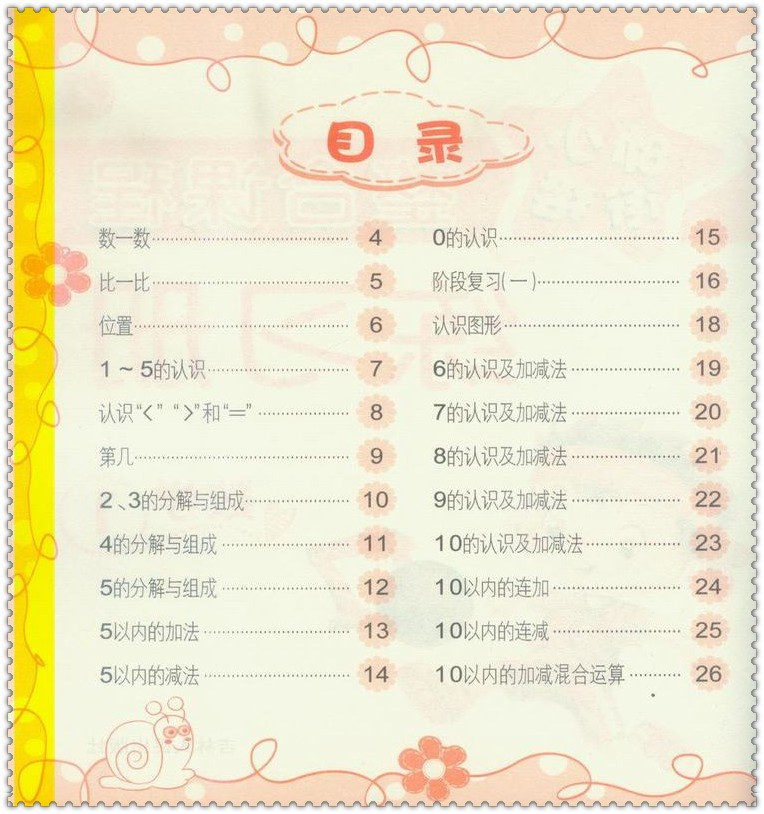 目录
数一数 4
比一比 5
位置 6
1~5的认识 7
认识“<”“>”和“=” 8
第几 9
2、3的分解与组成 10
4的分解与组成 11
5的分解与组成 12
5以内的加法 13
5以内的减法 14
0的认识 15
阶段复习(一) 16
认识图形 18
6的认识及加减法 19
7的认识及加减法 20
8的认识及加减法 21
9的认识及加减法 22
10的认识及加减法 23
10以内的连加 24
10以内的连减 25
10以内的加减混合运算 26